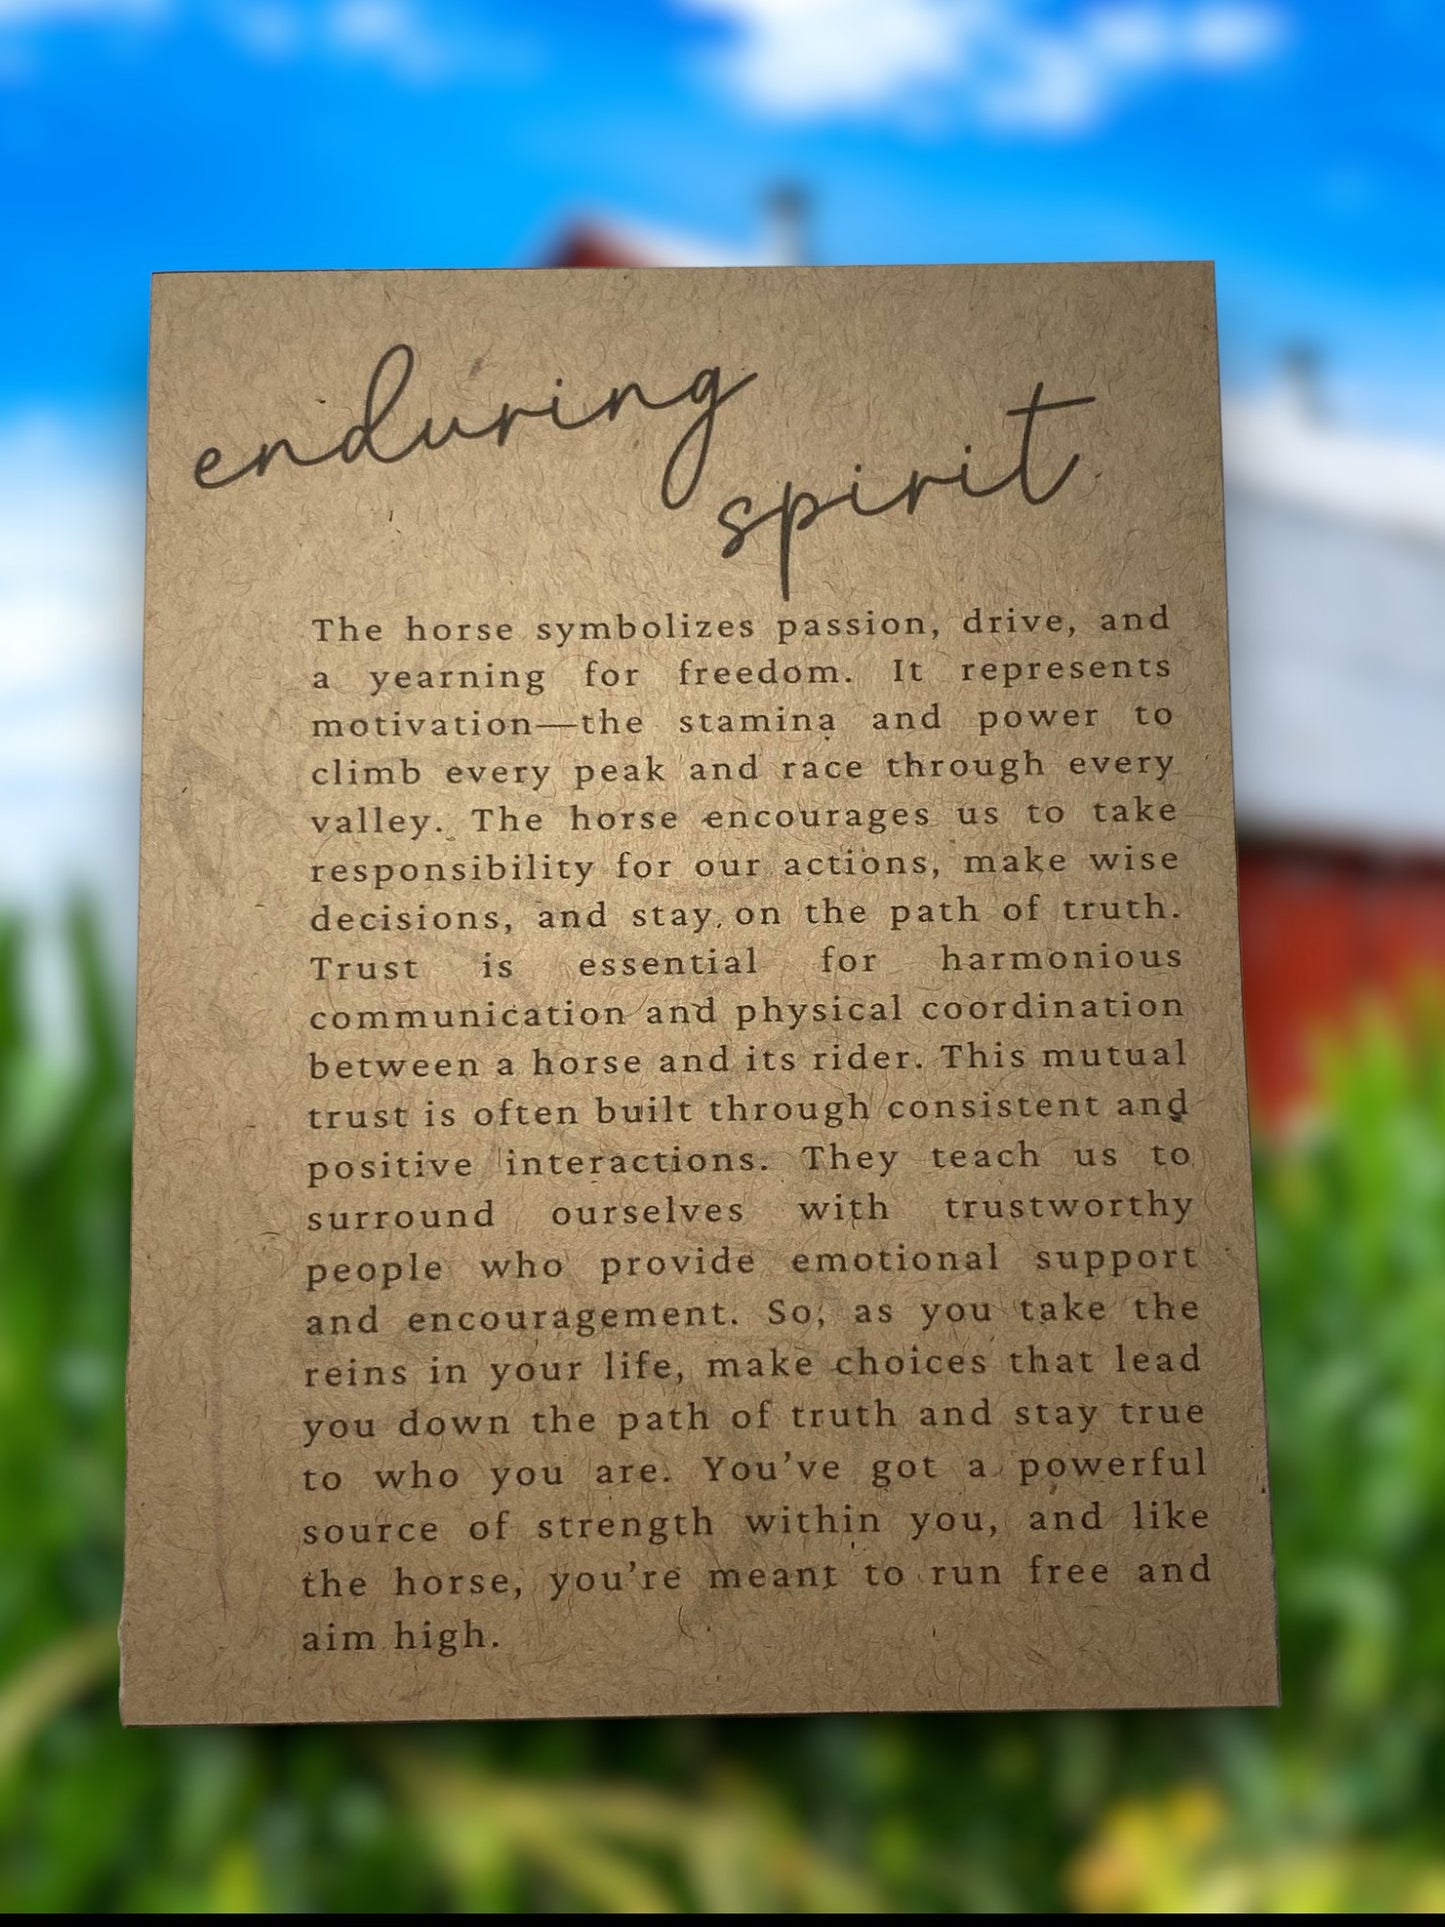 enduring
spirit
The horse symbolizes passion, drive, and
a yearning for freedom. It represents
motivation—the stamina and power to
climb every peak and race through every
valley. The horse encourages us to take
responsibility for our actions, make wise
decisions, and stay on the path of truth.
Trust is essential for harmonious
communication and physical coordination
between a horse and its rider. This mutual
trust is often built through consistent and
positive interactions. They teach us to
surround ourselves with trustworthy
people who provide emotional support
and encouragement. So, as you take the
reins in your life, make choices that lead
you down the path of truth and stay true
to who you are. You’ve got a powerful
source of strength within you, and like
the horse, you’re meant to run free and
aim high.